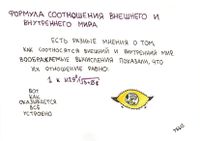 ФОРМУЛА СООТНОШЕНИЯ ВНЕШНЕГО И
ВНУТРЕННЕГО МИРА
ЕСТЬ РАЗНЫЕ МНЕНИЯ О ТОМ,
КАК СООТНОСЯТСЯ ВНЕШНИЙ И ВНУТРЕННИЙ МИР.
ВООБРАЖАЕМЫЕ ВЫЧИСЛЕНИЯ ПОКАЗАЛИ, ЧТО
ИХ ОТНОШЕНИЕ РАВНО:
1 К
ВОТ
КАК
ОКАЗЫВАЕТСЯ
ВСЁ
УСТРОЕНО